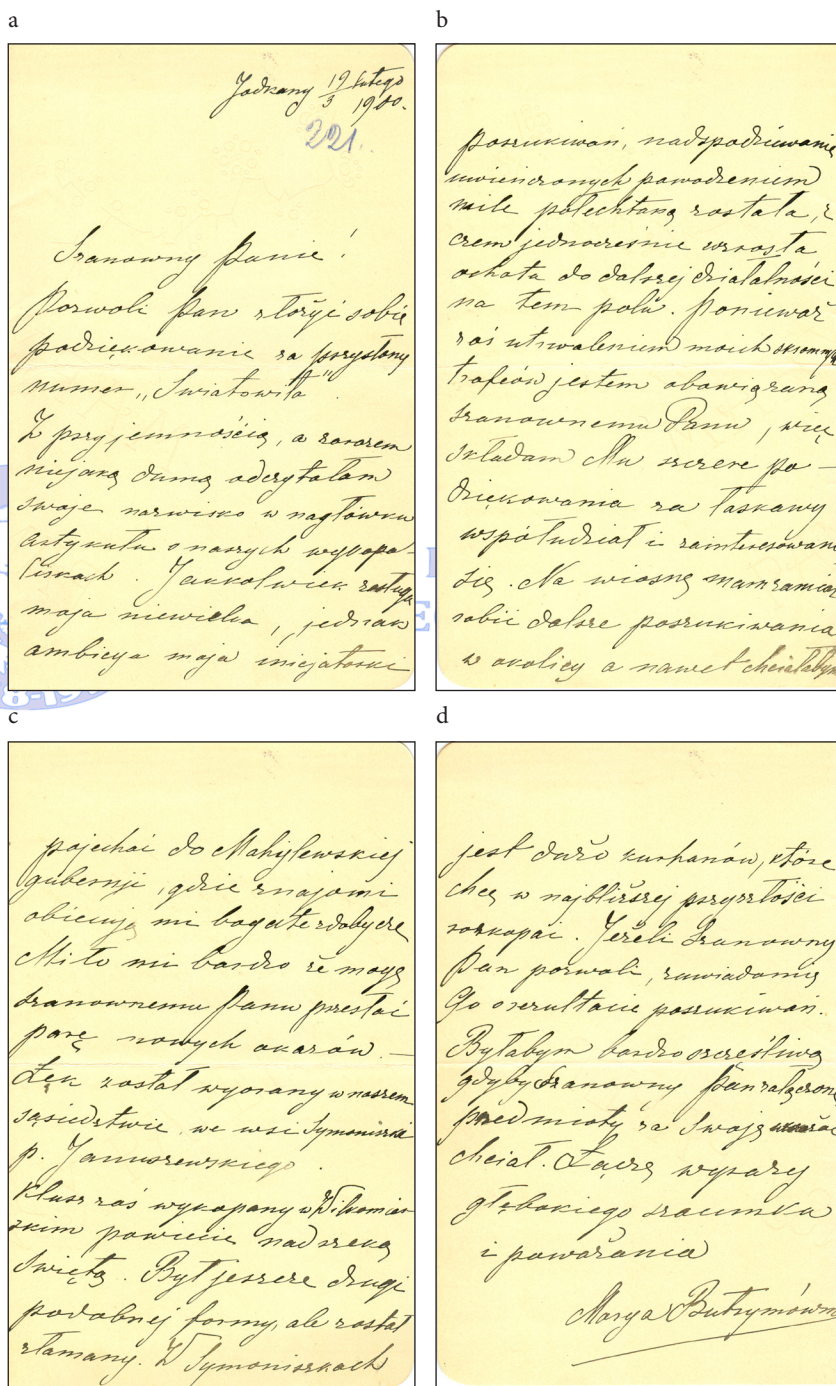 a
Jodkany 19 lutego
3 1900.
221.
Szanowny Panie!
Pozwoli Pan złożyć sobie
podziękowanie za przysłany
numer „Swiatowita"
Z przyjemnością, a zarazem
niejaką dumą odczytałam
swoje nazwisko w nagłówku
artykułu o naszych wykopa-
liskach. Jakkolwiek zasługa
moja niewielka, jednak
ambicya moja inicjatorki
b
poszukiwań, nadspodziewanie
uwieńczonych powodzeniem
mile połechtaną została, z
czem jednocześnie wzrosła
ochota do dalszej działalności
na tem polu. Ponieważ
zaś utrwaleniem moich skromnych
trofeów jestem obowiązaną
szanownemu Panu, więc
składam Mu szczere po-
dziękowania za łaskawy
współudział i zainteresowanie
się. Na wiosnę mam zamiar
robić dalsze poszukiwania
w okolicy a nawet chciałabym
c
pojechać do Mahylewskiej
gubernji, gdzie znajomi
obiecują mi bogate zdobycze
Miło mi bardzo że mogę
szanownemu Panu przesłać
parę nowych okazów. —
Łęk został wyorany w naszem
sąsiedztwie we wsi Symoniszki
p. Januszewskiego.
Klucz zaś wykopany w Wiłkomier-
skim powiecie nad rzeką
Świętą. Był jeszcze drugi
podobnej formy, ale został
złamany. W Symoniszkach
d
jest dużo kurhanów, które
chcę w najbliższej przyszłości
rozkopać. Jeżeli Szanowny
Pan pozwoli, zawiadomię
Go o rezultacie poszukiwań.
Byłabym bardzo szczęśliwą
gdyby Szanowny Pan załączone
przedmioty za Swoje uważać
chciał. Łączę wyrazy
głębokiego szacunku
i poważania
Marya Butrymówna